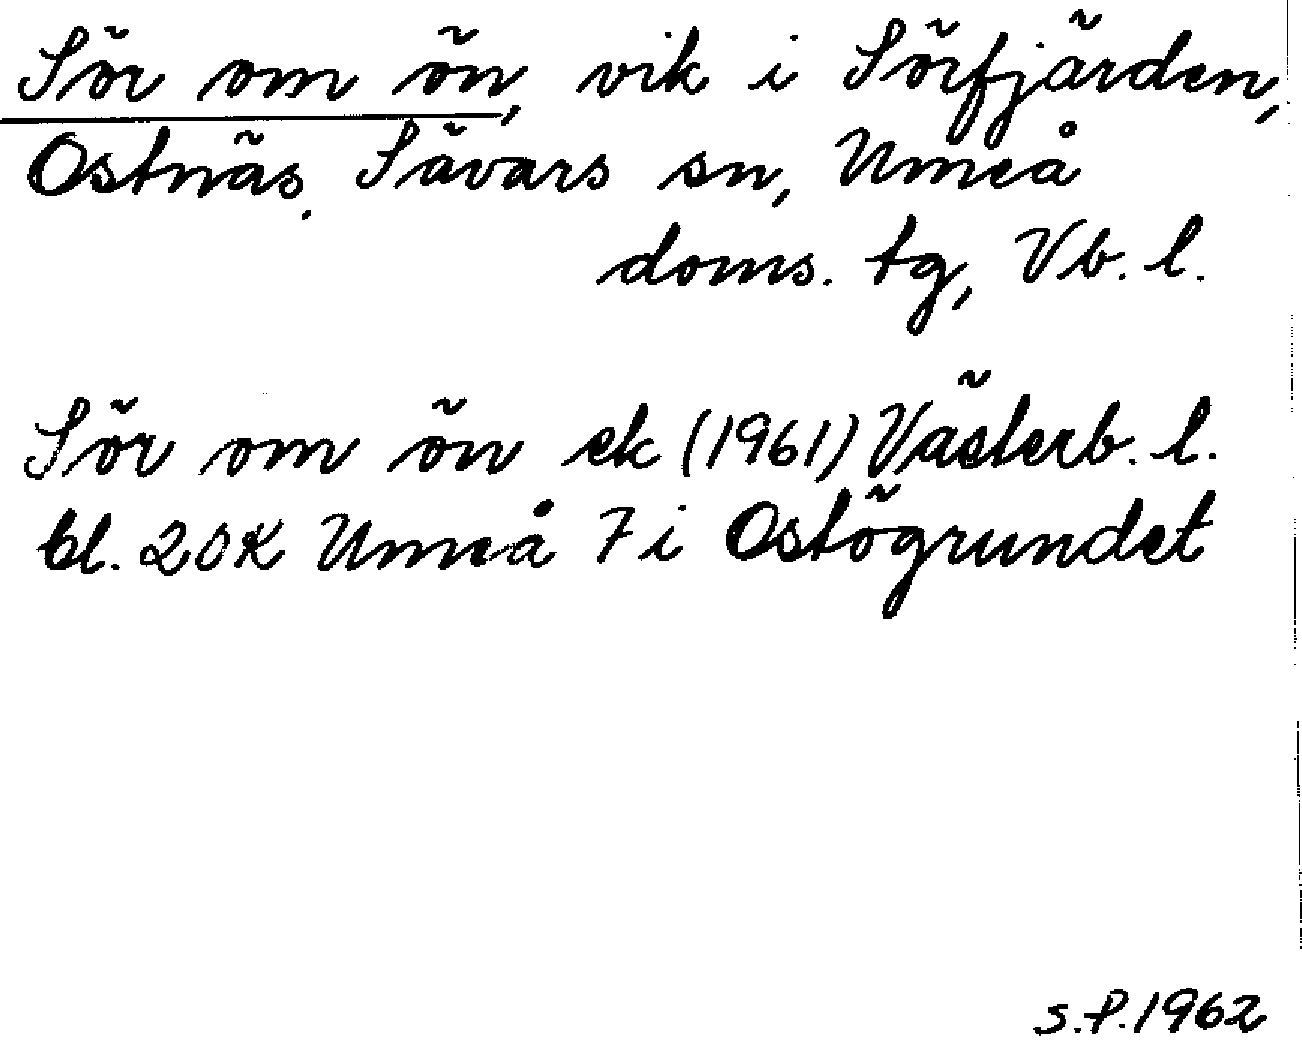 Sör om ön, vik i Sörfjärden,
Ostnäs, Sävars sn, Umeå
doms. tg, Vb. l.
Sör om ön ek (1961) Västerb. l.
bl. 20K Umeå 7i Ostögrundet
S.P. 1962